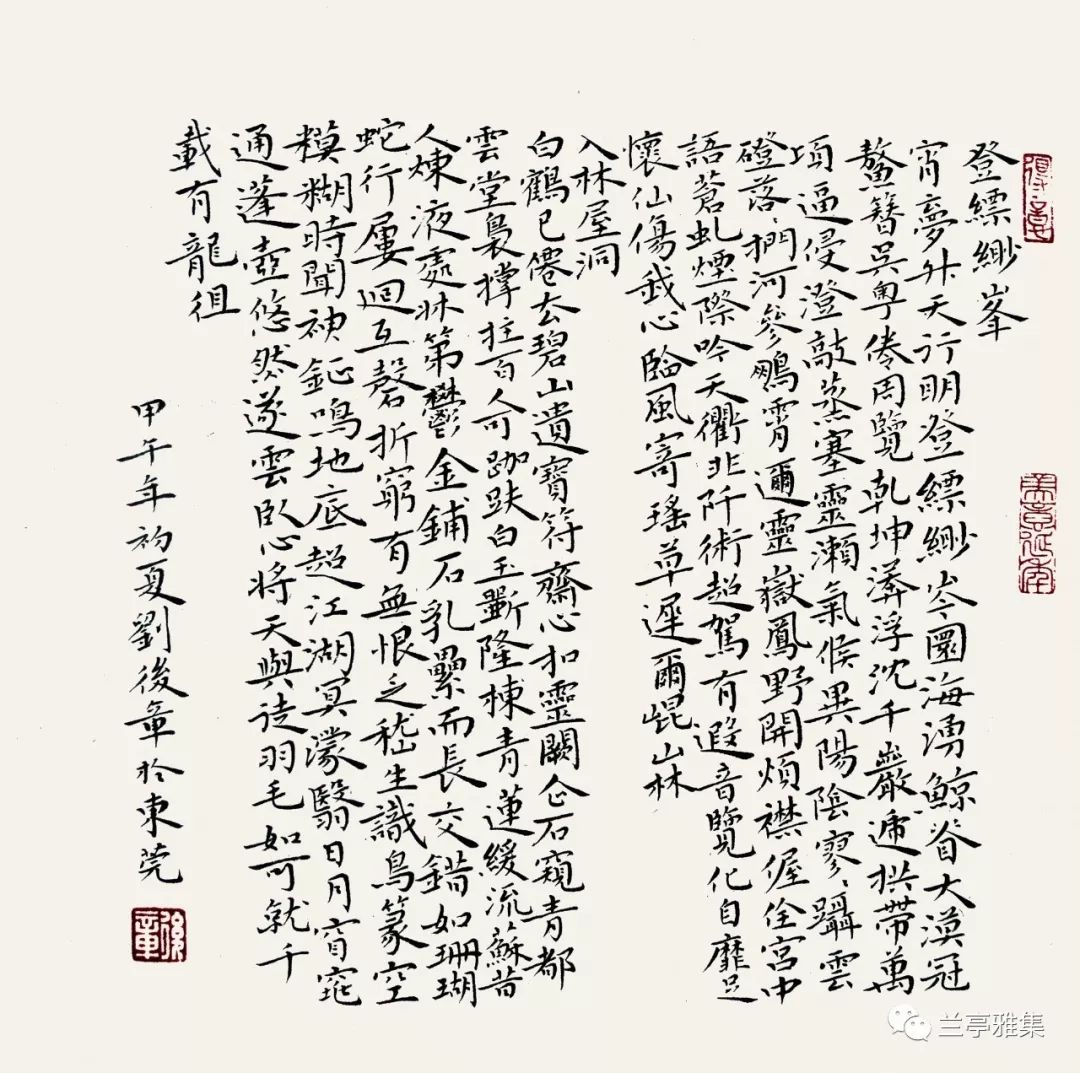 登縹緲峯
宵夢升天行明登縹緲岑圜海湧鯨脊大漠冠
鰲簪吳粵倦周覽乾坤漭浮沈千巖遞拱帶萬
項逼侵澄敲蒸塞靈瀨氣候異陽陰寥躡雲
磴落捫河參鵰霄邇靈嶽鳳野開煩襟偓佺宮中
語蒼虬煙際吟天衢非阡術超駕有遐音覽化自靡足
懷仙傷我心臨風寄瑤草遲爾崑山林
入林屋洞
白鶴已僊去碧山遺寶符齋心扣靈闕企石窺青都
雲堂裊撐拄百人可跏趺白玉斷隆棟青蓮緩流蘇昔
人煉液處牀第鬱金鋪石乳纍而長交錯如珊瑚
蛇行屢迴互磬折窮有無恨乏嵇生識鳥篆空
模糊時聞神鉦鳴地底超江湖冥濛翳日月窅窕
通蓬壺悠然遂雲臥心將天與徒羽毛如可就千
載有龍徂
甲午年初夏劉後章於東莞
兰亭雅集